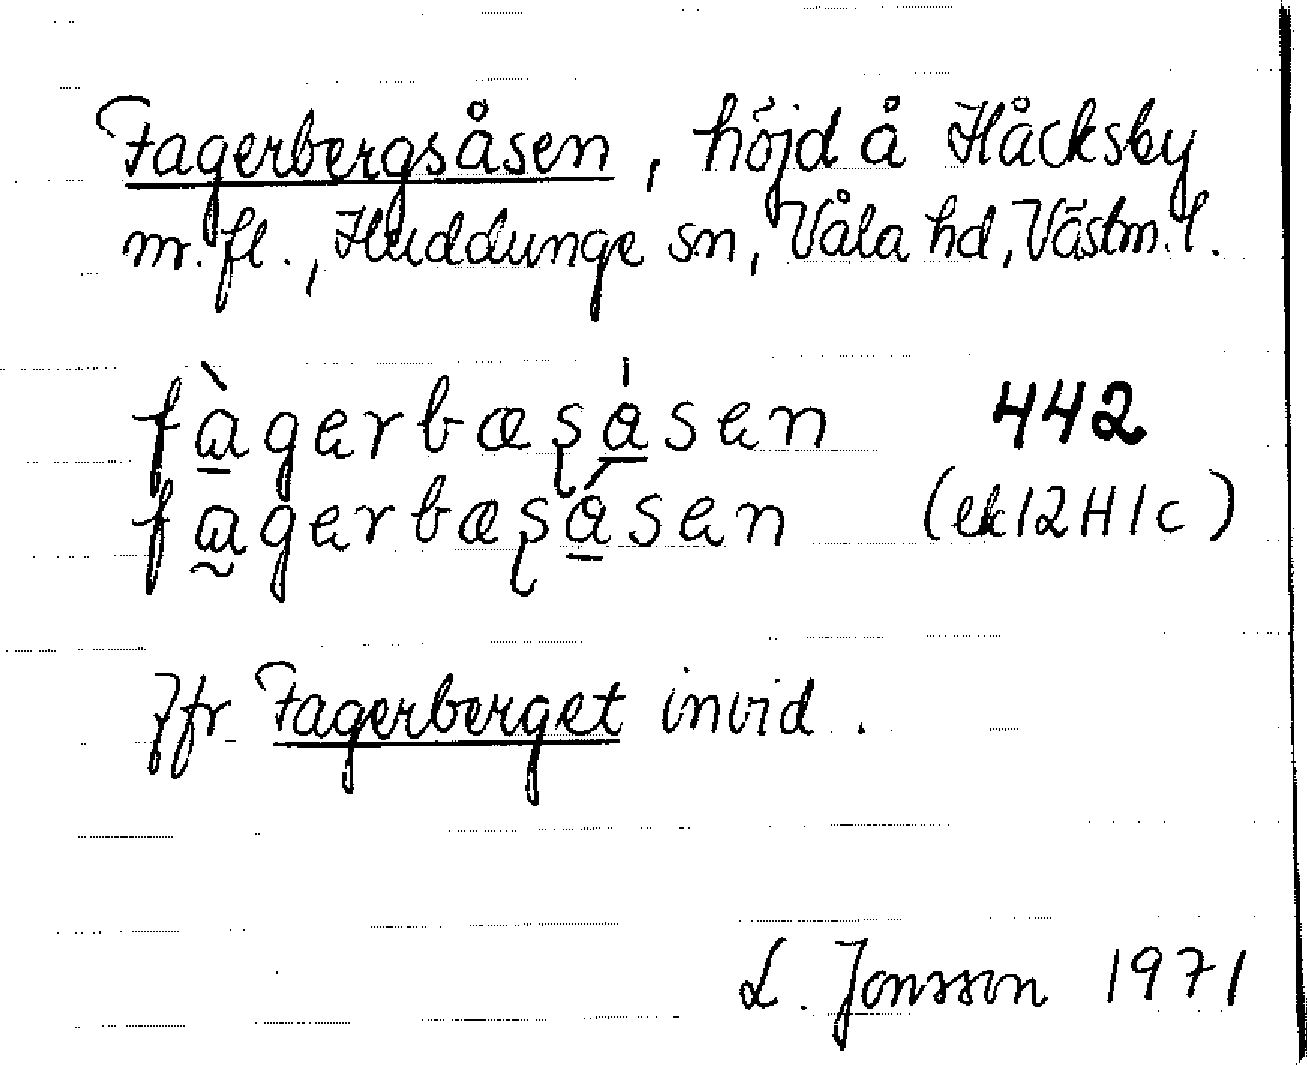 Fagerbergsåsen, höjd å Håcksby
m.fl., Huddunge sn, Våla hd, Västm. l.
fàgerbæʂåsen 442
fagerbæʂåsen (ek 12H1c)
Jfr Fagerberget invid.
L. Jonsson 1971